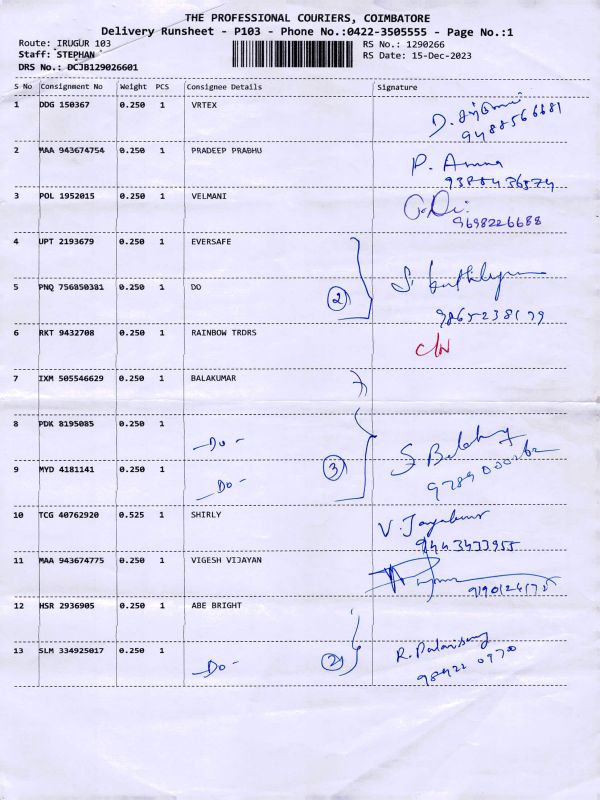 THE PROFESSIONAL COURIERS, COIMBATORE
Delivery Runsheet - P103 - Phone No.:0422-3505555 - Page No.:1
Route: IRUGUR 103 RS No.: 1290266
Staff: STEPHAN RS Date: 15-Dec-2023
DRS No.: DCJB129026601
S No Consignment No Weight PCS Consignee Details Signature
1 DDG 150367 0.250 1 VRTEX
9488566681
2 MAA 943674754 0.250 1 PRADEEP PRABHU P. Amma
3 POL 1952015 0.250 1 VELMANI
9698226688
4 UPT 2193679 0.250 1 EVERSAFE
5 PNQ 756850381 0.250 1 DO 2
9865238179
6 RKT 9432708 0.250 1 RAINBOW TRDRS
7 IXM 505546629 0.250 1 BALAKUMAR
8 PDK 8195085 0.250 1
-Do-
9 MYD 4181141 0.250 1 3
-Do-
10 TCG 40762920 0.525 1 SHIRLY
9443433955
11 MAA 943674775 0.250 1 VIGESH VIJAYAN
12 HSR 2936905 0.250 1 ABE BRIGHT
13 SLM 334925017 0.250 1 2
-Do-